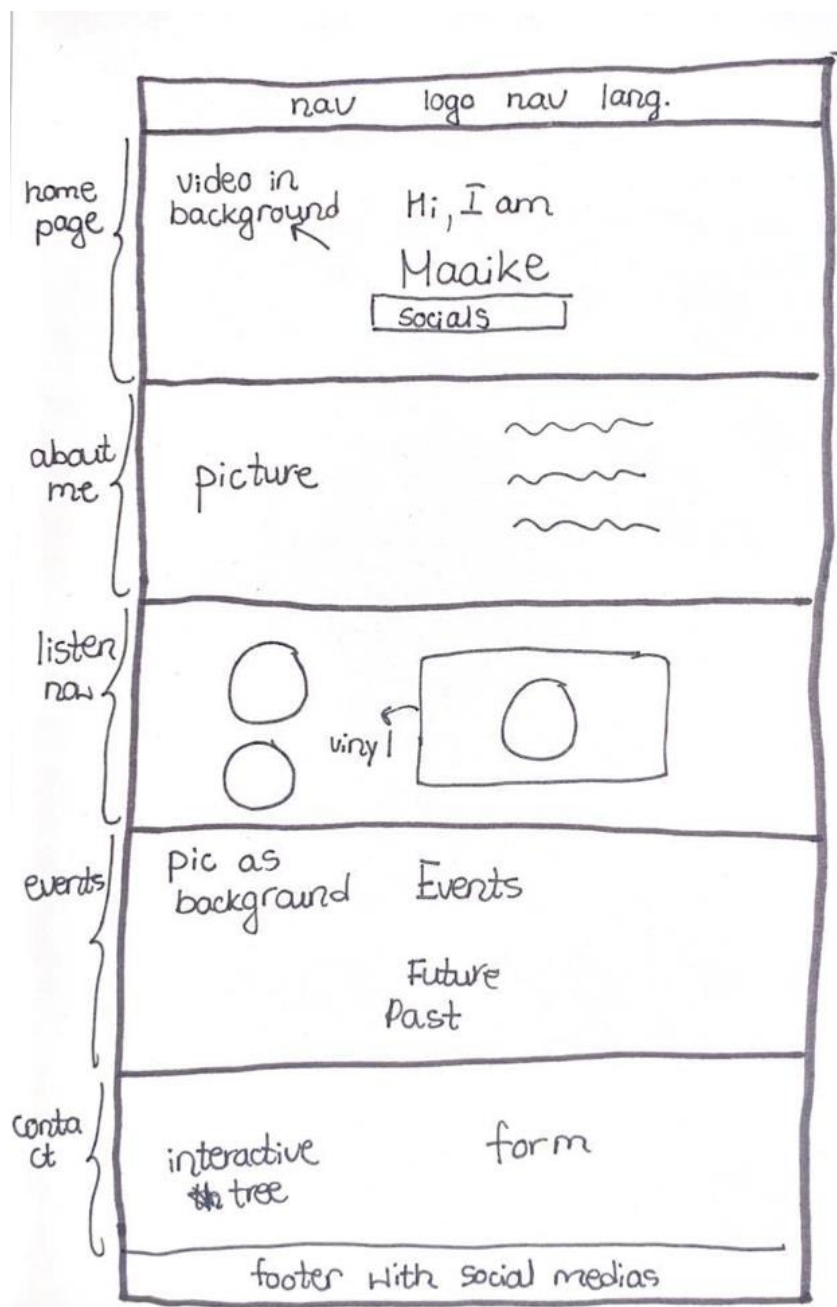 nav logo nav lang.
home
page
video in
background
Hi, I am
Maaike
Socials
about
me
picture
listen
now
vinyl
events
pic as
background
Events
Future
Past
conta
ct
interactive
tree
form
footer with social medias